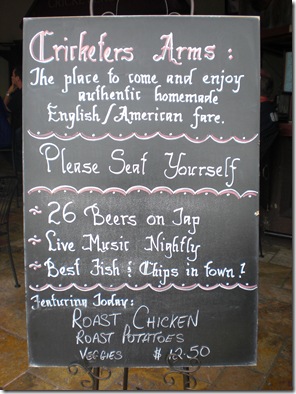 Cricketers Arms:
The place to come and enjoy
authentic homemade
English/American fare.
Please Seat Yourself
~ 26 Beers on Tap
~ Live Music Nightly
~ Best Fish & Chips in town!
Featuring Today:
ROAST CHICKEN
ROAST POTATOES
VEGGIES $12.50